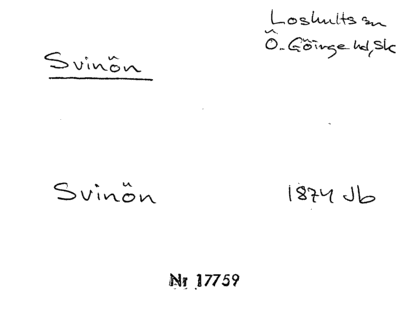 Loshults sn
Ö. Göinge hd, Sk
Svinön
Svinön 1874 Jb
Nr 17759